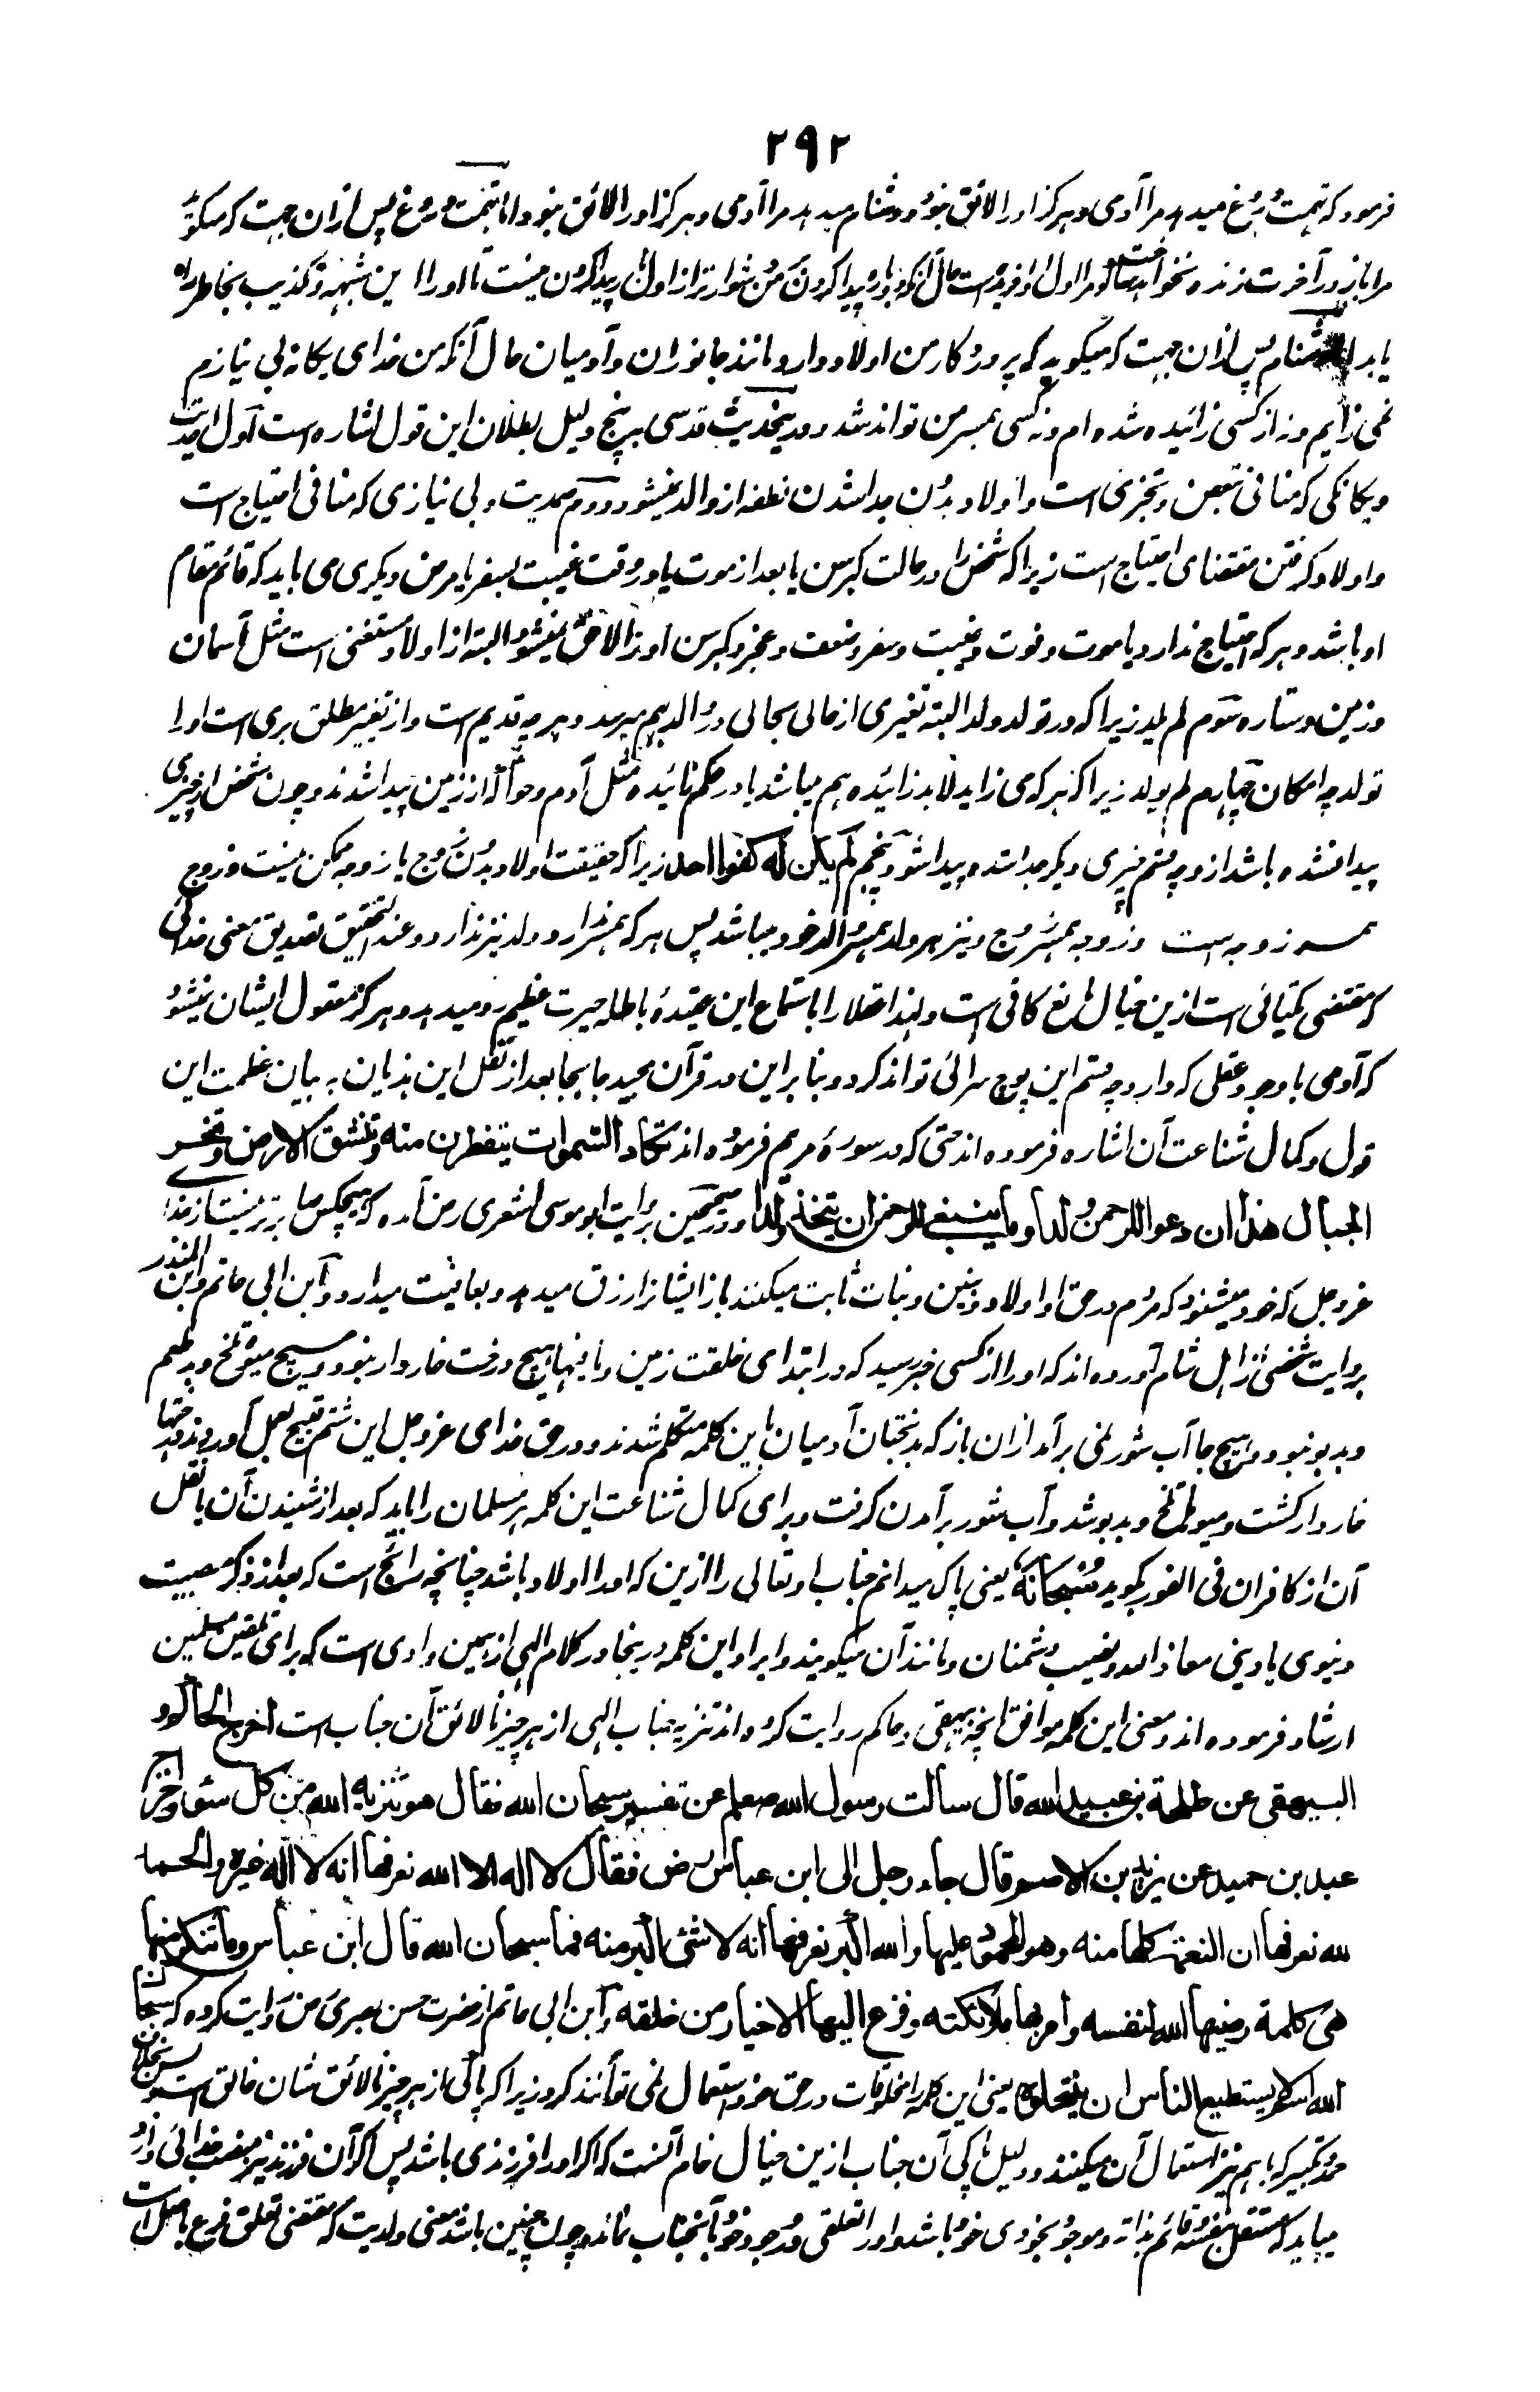 ۲۹۲
فرمود که تهمت دروغ میدهد مرا آدمی و هرگز اورا لائق نبود و دشنام میدهد مرا آدمی و هرگز اورا لائق نبود اما تهمت دروغ پس ازان جهت که میگوید
مرا باز در آخرت زنده نخواهد ساخت چنانکه مرا اول بار آفریده است حال آنکه دوباره پیدا کردن بر من دشوارتر از اول بار پیدا کردن نیست تا اورا این شبهه و تکذیب بخاطر راه
یابد اما دشنام پس ازان جهت که میگوید که پروردگار من اولاد دارد مانند جانوران و آدمیان حال آنکه من خدای یگانه بی نیازم
نمی زایم و نه از کسی زائیده شده ام و نه کسی همسر من تواند شد و درینحدیث قدسی بر پنج دلیل بطلان این قول اشاره است اول احدیت
و یگانگی که منافی تبعض و تجزی است و اولاد بدون جدا شدن نطفه از والد نمیشود دوم صمدیت و بی نیازی که منافی احتیاج است
و اولاد گرفتن مقتضای احتیاج است زیرا که شخص را در حالت کبر سن یا بعد از موت یا در وقت غیبت بسفر یا مرض دیگری می باید که قائم مقام
او باشد و هر که احتیاج ندارد یا موت و فوت و غیبت و سفر و ضعف و عجز و کبر سن اورا لاحق نمیشود البته از اولاد مستغنی است مثل آسمان
و زمین و ستاره سوم لم یلد زیرا که در تولد ولد البته تغیری از حالی بحالی در والد بهم میرسد و هر چه قدیم است و از تغیر مطلق بری است اورا
تولد چه امکان چهارم لم یولد زیرا که هر که می زاید لابد زائیده هم میباشد یا در حکم زائیده مثل آدم و حوا که از زمین پیدا شدند و چون شخص از چیزی
پیدا نشده باشد ازو چه قسم چیزی دیگر جدا شده پیدا شود پنجم لم یکن له کفوا احد زیرا که حقیقت اولاد بدون زوج با زوجه ممکن نیست و زوج
همسر زوجه است و زوجه همسر زوج و نیز هر ولد همسر والد خود میباشد پس هر که همسر ندارد ولد نیز ندارد و عند التحقیق تصدیق معنی خدائی
که مقتضی یکتائی است ازین خیال مانع کافی است و لهذا عقلا را باستماع این عقیدهٔ باطله حیرت عظیم رو میدهد و هرگز معقول ایشان نمیشود
که آدمی با وجود عقلی که دارد چه قسم این پوچ سرائی تواند کرد و بنا برین در قرآن مجید جابجا بعد از نقل این هذیان به بیان عظمت این
قول و کمال شناعت آن اشاره فرموده اند حتی که در سورهٔ مریم فرموده اند تکاد السموات یتفطرن منه و تنشق الارض و تخر
الجبال هذا ان دعوا للرحمن ولدا و ما ینبغی للرحمن ان یتخذ ولدا و در صحیحین بروایت ابو موسی اشعری رض آمده که هیچکس صابرتر نیست از خدا
عزوجل که خود میشنود که مردم در حق او اولاد و بنین و بنات ثابت میکنند باز ایشانرا رزق میدهد و بعافیت میدارد و ابن ابی حاتم و ابن المنذر
بروایت شخصی از اهل شام آورده اند که اورا از کسی خبر رسید که در ابتدای خلقت زمین و مافیها هیچ درخت خاردار نبود و هیچ میوهٔ تلخ و بدطعم
و بدبو نبود و از هیچ جا آب شور نمی برآمد ازان باز که بدبختان آدمیان باین کلمه متکلم شدند و در حق خدای عزوجل این شتم قبیح بعمل آوردند درختها
خاردار گشت و میوها تلخ و بدبو شد و آب شور برآمدن گرفت و برای کمال شناعت این کلمه هر مسلمان را باید که بعد از شنیدن آن یا نقل
آن از کافران فی الفور بگوید سبحانه یعنی پاک میدانم جناب او تعالی را ازین که اورا اولاد باشد چنانچه رائج است که بعد از ذکر مصیبت
دنیوی یا دینی معاذ الله و نصیب دشمنان و مانند آن میگویند و ایراد این کلمه درینجا در کلام الهی از همین وادی است که برای تلقین مسلمین
ارشاد فرموده اند و معنی این کلمه موافق آنچه بیهقی و حاکم روایت کرده اند تنزیه جناب الهی از هر چیز نالائق آن جناب است اخرج الحاکم و
البیهقی عن طلحة بن عبید الله قال سالت رسول الله صلعم عن تفسیر سبحان الله فقال هو تنزیه الله من کل سوء و اخرج
عبد بن حمید عن یزید بن الاصم قال جاء رجل الی ابن عباس رض فقال لا اله الا الله نعرفها انه لا اله غیره و الحمد
لله نعرفها ان النعم کلها منه و هو المحمود علیها و الله اکبر نعرفها انه لا شئ اکبر منه فما سبحان الله قال ابن عباس و ما تنکر منها
هی کلمة رضیها الله لنفسه و امر بها ملائکته و فزع الیها الاخیار من خلقه و ابن ابی حاتم از حضرت حسن بصری رض روایت کرده که سبحان
الله اسم لا یستطیع الناس ان ینتحلوه یعنی این کلمه را مخلوقات در حق خود استعمال نمی توانند کرد زیرا که پاکی از هر چیز نالائق شان خالق است و بس بخلاف
حمد و تکبیر که باهم نیز استعمال آن میکنند و دلیل پاکی آن جناب ازین خیال خام آنست که اگر اورا فرزندی باشد پس اگر آن فرزند نیز منصب خدائی دارد
میباید که مستقل بنفسه و قائم بذاته و موجود بخودی خود باشد و اورا تعلقی در وجود خود بآنجناب نماند و چون چنین باشد معنی ولدیت که مقتضی تعلق فرع باصل است